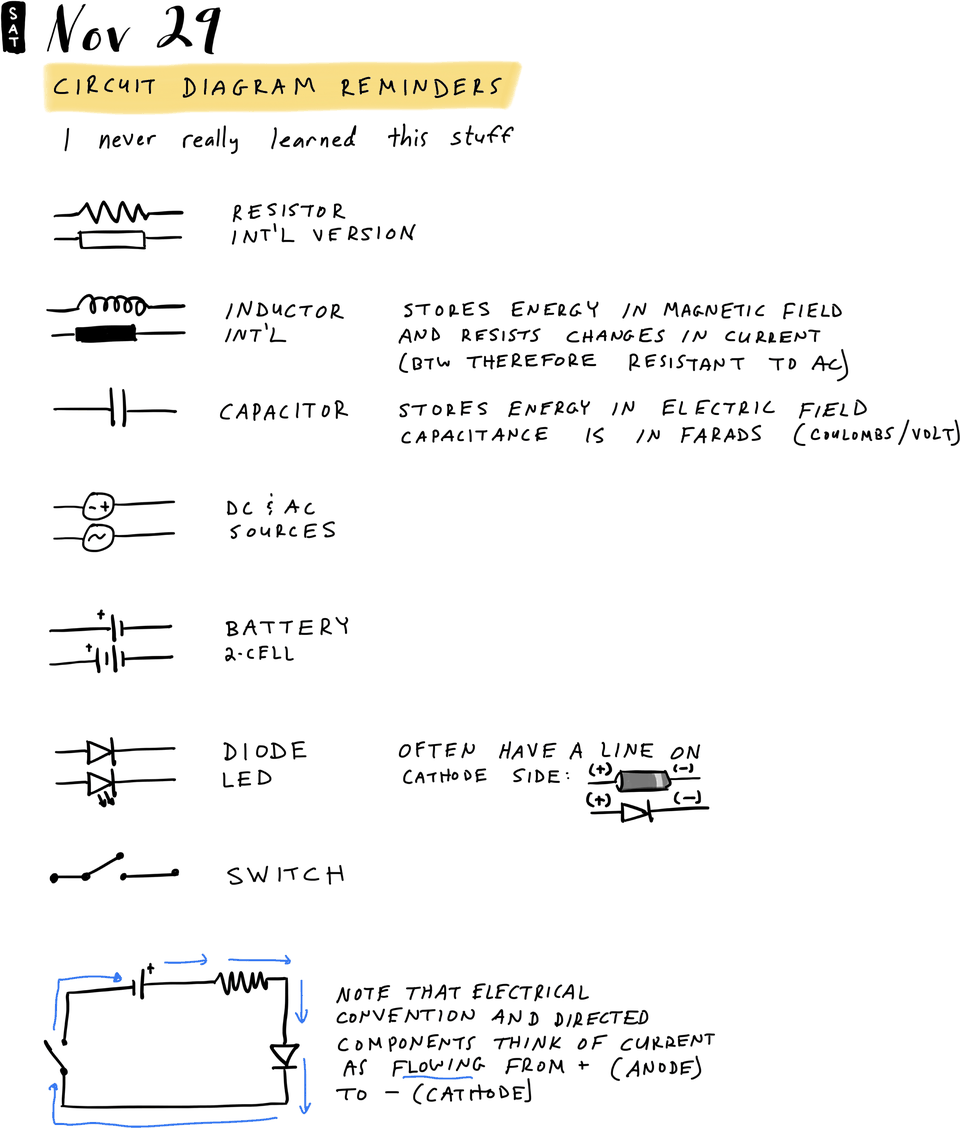 SAT
Nov 29
CIRCUIT DIAGRAM REMINDERS
I never really learned this stuff
RESISTOR
INT'L VERSION
INDUCTOR STORES ENERGY IN MAGNETIC FIELD
INT'L AND RESISTS CHANGES IN CURRENT
(BTW THEREFORE RESISTANT TO AC)
CAPACITOR STORES ENERGY IN ELECTRIC FIELD
CAPACITANCE IS IN FARADS (COULOMBS/VOLT)
- +
DC & AC
~
SOURCES
+
BATTERY
+
2-CELL
DIODE OFTEN HAVE A LINE ON
LED CATHODE SIDE: (+) (-)
(+) (-)
SWITCH
+
NOTE THAT ELECTRICAL
CONVENTION AND DIRECTED
COMPONENTS THINK OF CURRENT
AS FLOWING FROM + (ANODE)
TO - (CATHODE)